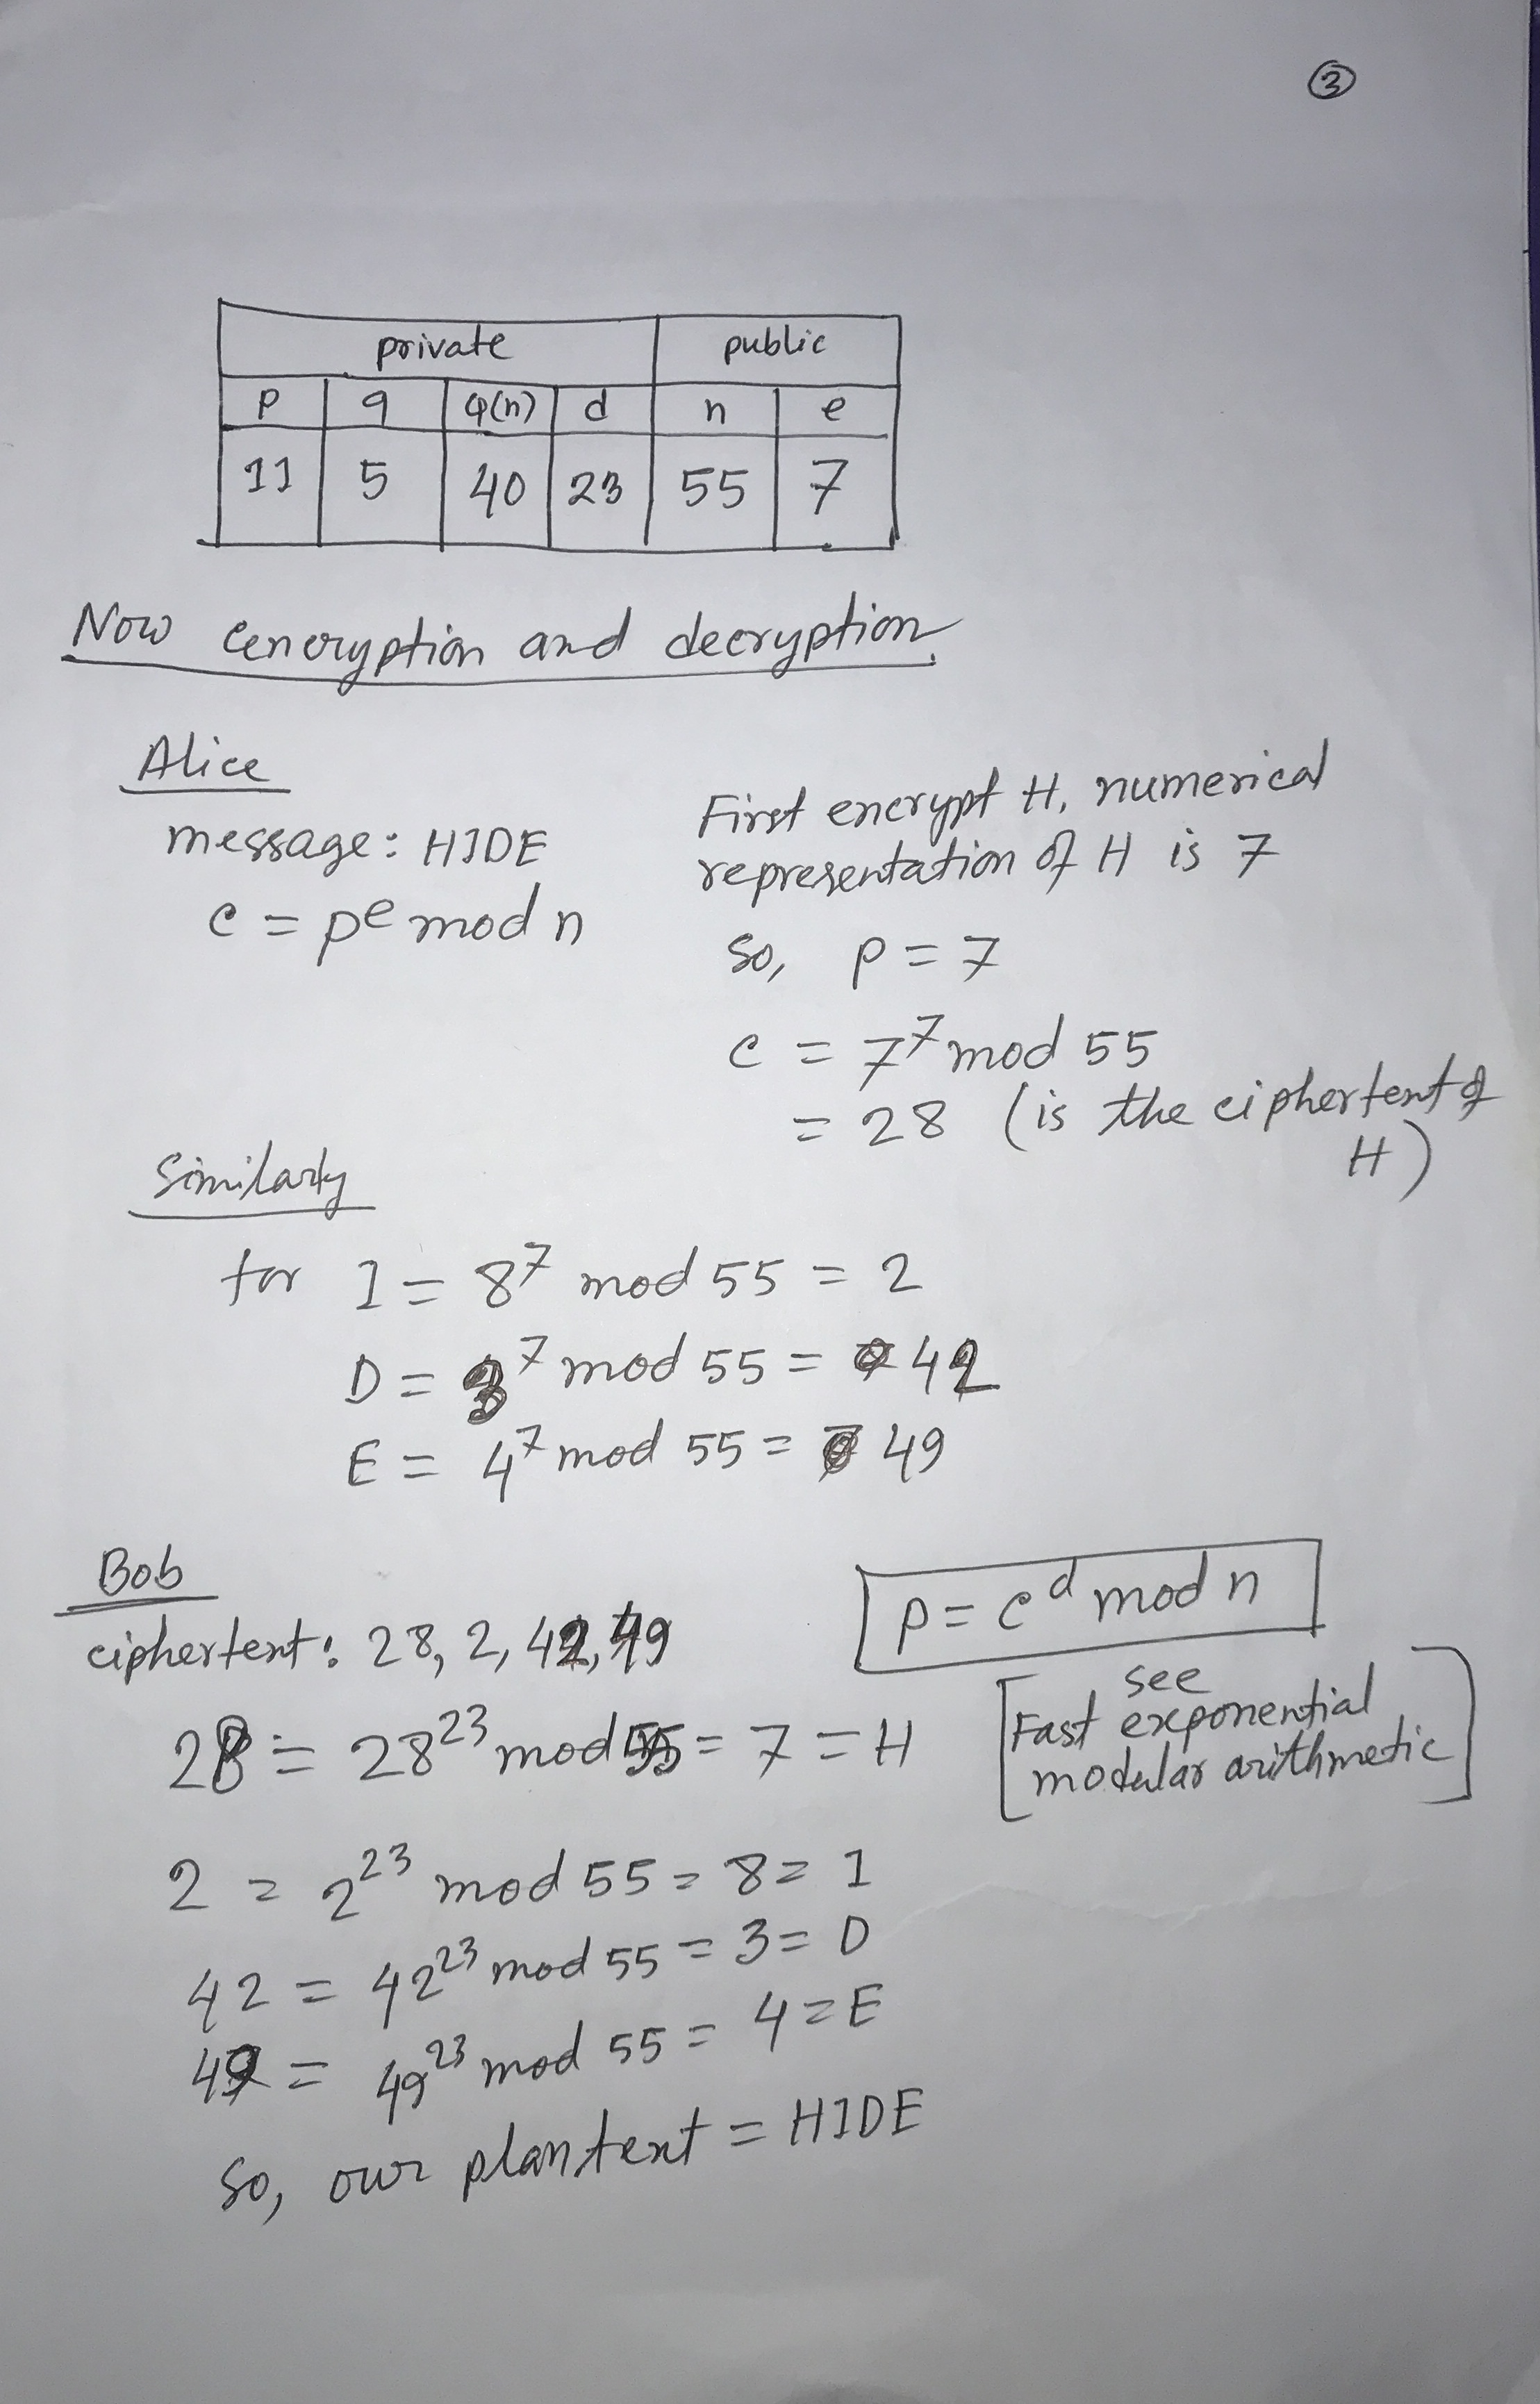 3
private public
p q φ(n) d n e
11 5 40 23 55 7
Now encryption and decryption.
Alice
message: HIDE
c = p^e mod n
First encrypt H, numerical
representation of H is 7
So, p = 7
c = 7^7 mod 55
= 28 (is the ciphertext of
H)
Similarly
for I = 8^7 mod 55 = 2
D = 3^7 mod 55 = 42
E = 4^7 mod 55 = 49
Bob
ciphertext: 28, 2, 42, 49
p = c^d mod n
28 = 28^23 mod 55 = 7 = H
[see
Fast exponential
modular arithmetic]
2 = 2^23 mod 55 = 8 = I
42 = 42^23 mod 55 = 3 = D
49 = 49^23 mod 55 = 4 = E
So, our plantext = HIDE